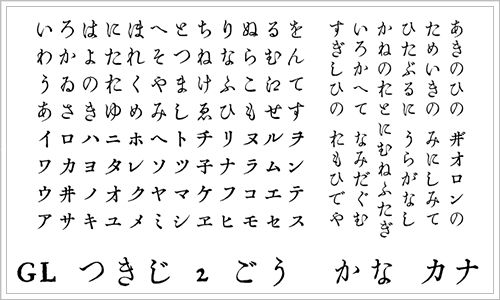 いろはにほへとちりぬるを
わかよたれそつねならむん
うゐのおくやまけふこえて
あさきゆめみしゑひもせす
イロハニホヘトチリヌルヲ
ワカヨタレソツ子ナラムン
ウヰノオクヤマケフコエテ
アサキユメミシヱヒモセス
あきのひの ヰオロンの
ためいきの みにしみて
ひたぶるに うらがなし
かねのおとにむねふたぎ
いろかへて なみだぐむ
すぎしひの おもひでや
GL つきじ 2 ごう かな カナ